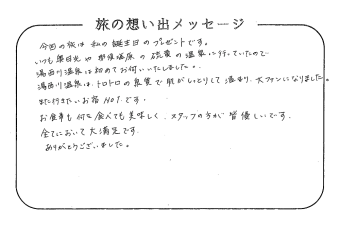 旅の想い出メッセージ
今回の旅は 私の誕生日のプレゼントです。
いつも奥日光や那須塩原の硫黄の温泉に行っていたので
湯西川温泉は初めてお伺いいたしました。
湯西川温泉は、トロトロの泉質で肌がしっとりして温まり、大ファンになりました。
また行きたいお宿 NO1.です。
お食事も何を食べても美味しく、スタッフの方が皆優しいです。
全てにおいて大満足です。
ありがとうございました。